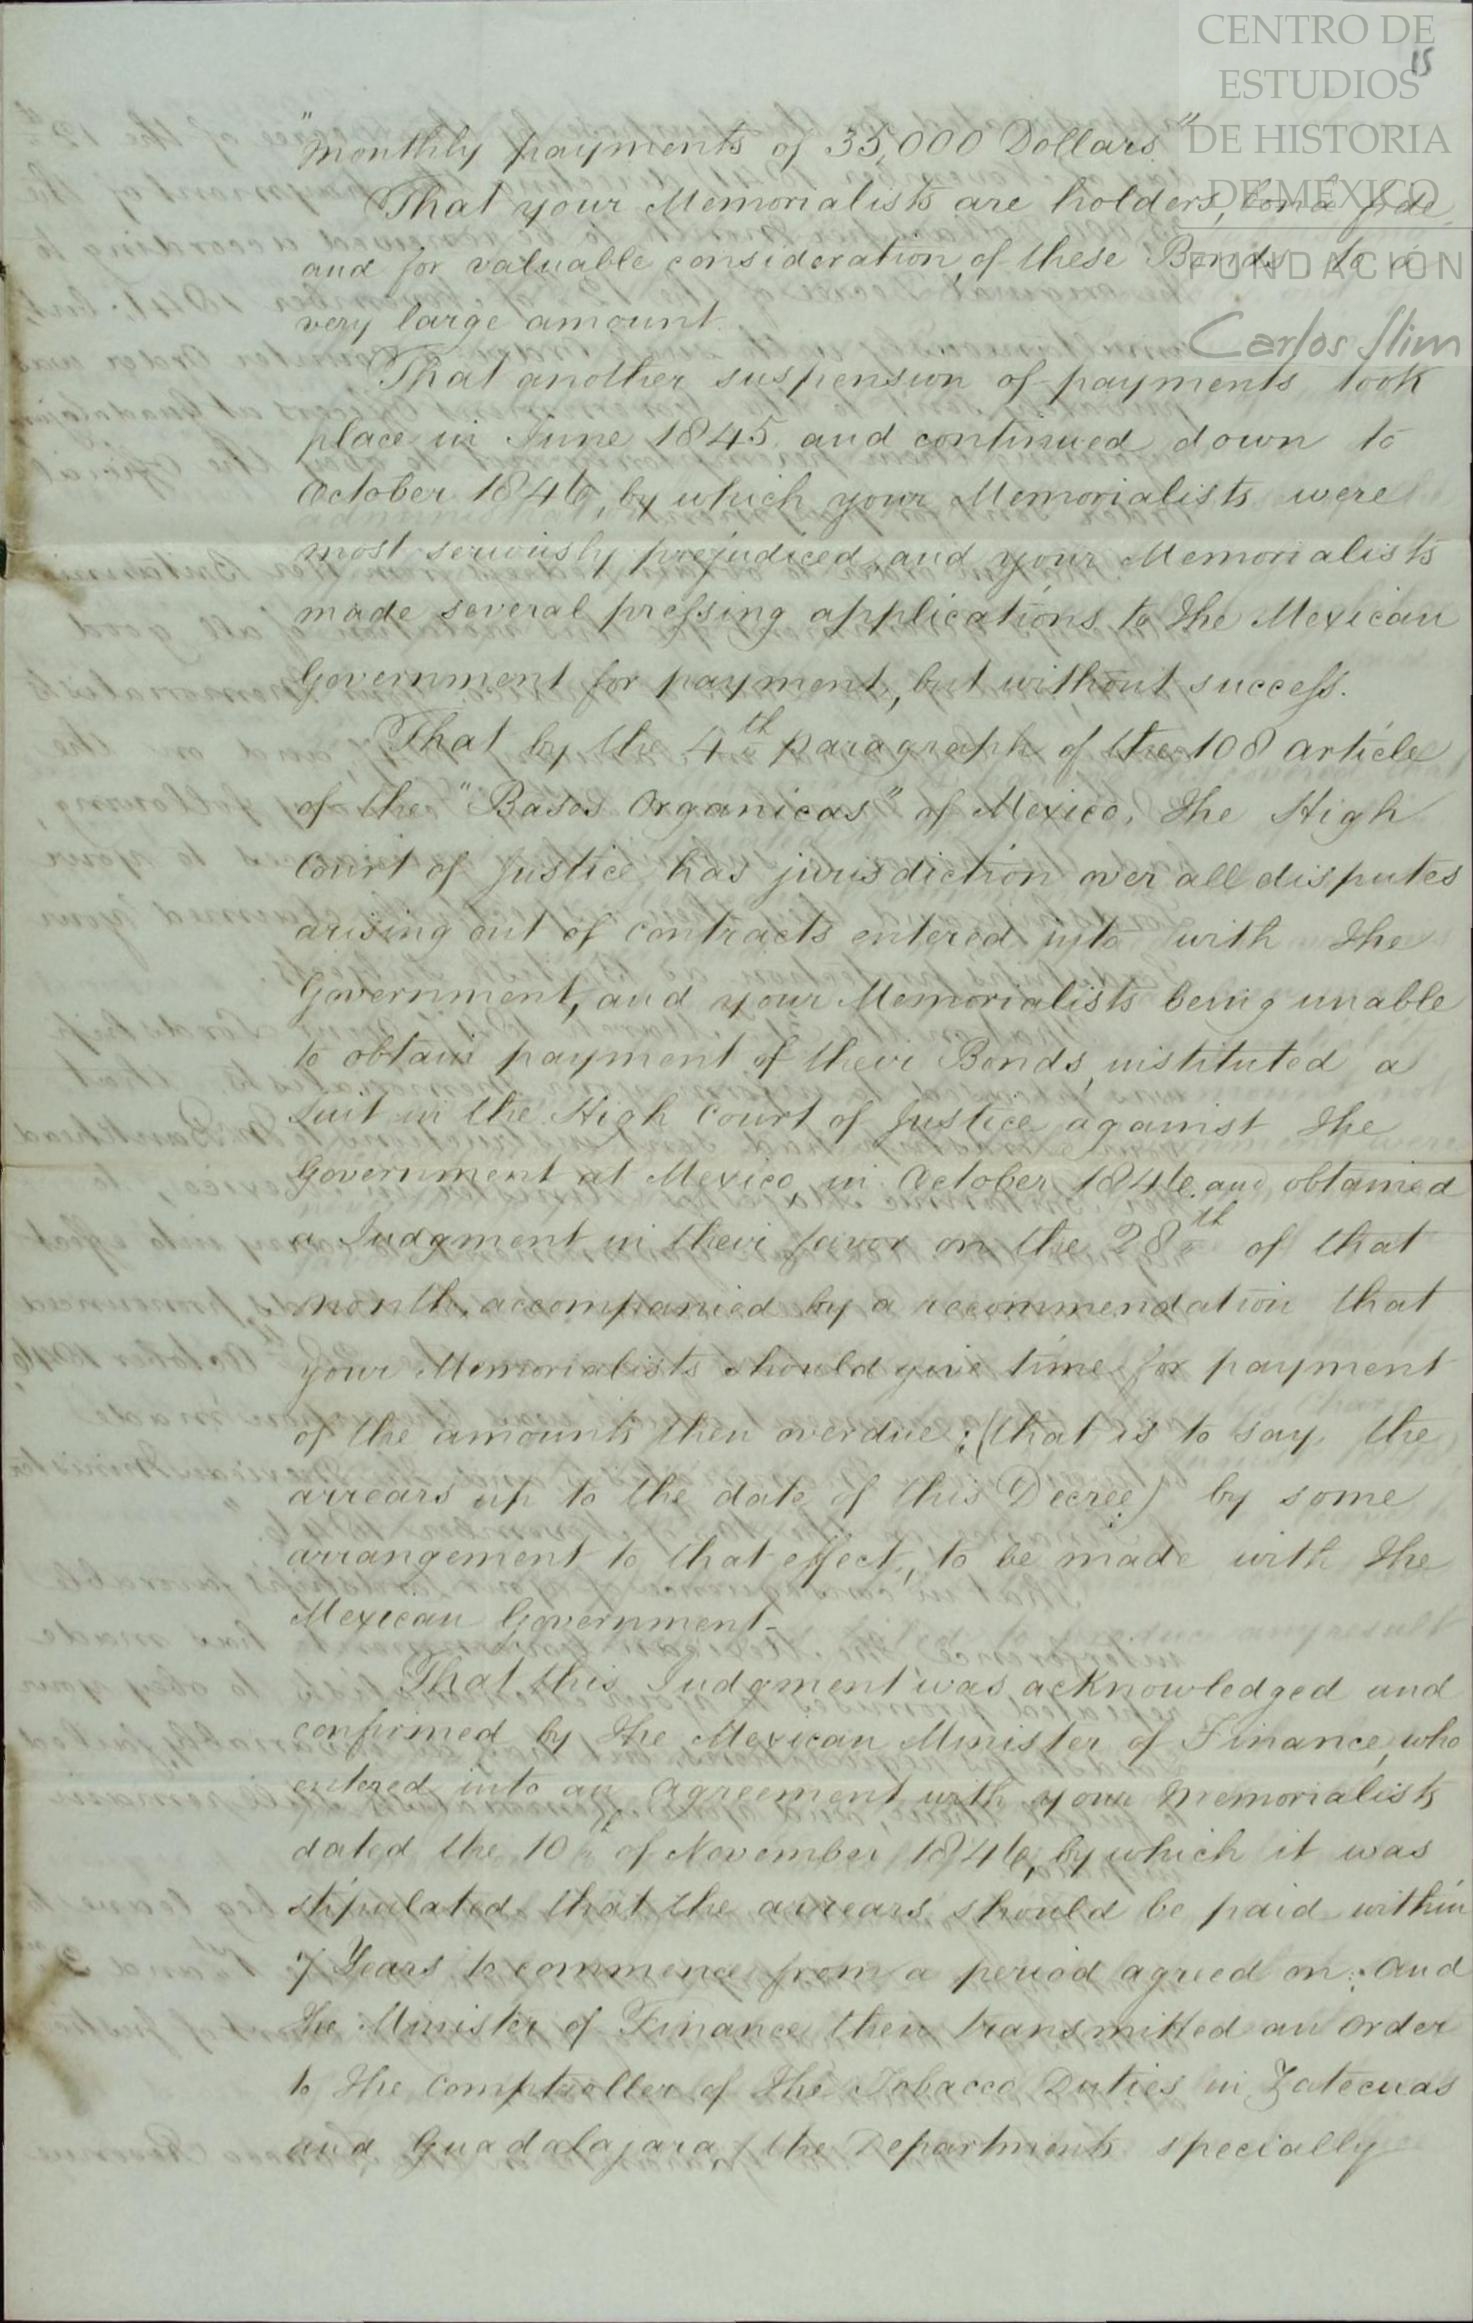 CENTRO DE
ESTUDIOS
DE HISTORIA
DE MÉXICO
FUNDACIÓN
Carlos Slim
15
"monthly payments of 35,000 Dollars"
That your Memorialists are holders, bona fide
and for valuable consideration, of these Bonds to a
very large amount.
That another suspension of payments took
place in June 1845 and continued down to
October 1846, by which your Memorialists were
most seriously prejudiced, and your Memorialists
made several pressing applications to the Mexican
Government for payment, but without success.
That by the 4th paragraph of the 108 article
of the "Bases Organicas" of Mexico, the High
Court of Justice has jurisdiction over all disputes
arising out of contracts entered into with the
Government, and your Memorialists being unable
to obtain payment of their Bonds, instituted a
suit in the High Court of Justice against the
Government at Mexico, in October 1846, and obtained
a Judgment in their favor on the 28th of that
month, accompanied by a recommendation that
your Memorialists should give time for payment
of the amounts then overdue; (that is to say, the
arrears up to the date of this Decree) by some
arrangement to that effect, to be made with the
Mexican Government.
That this Judgment was acknowledged and
confirmed by the Mexican Minister of Finance, who
entered into an agreement with your Memorialists
dated the 10th of November 1846, by which it was
stipulated that the arrears should be paid within
7 Years to commence from a period agreed on; and
the Minister of Finance then transmitted an order
to the Comptroller of the Tobacco Duties in Zatecuas
and Guadalajara, the Departments specially